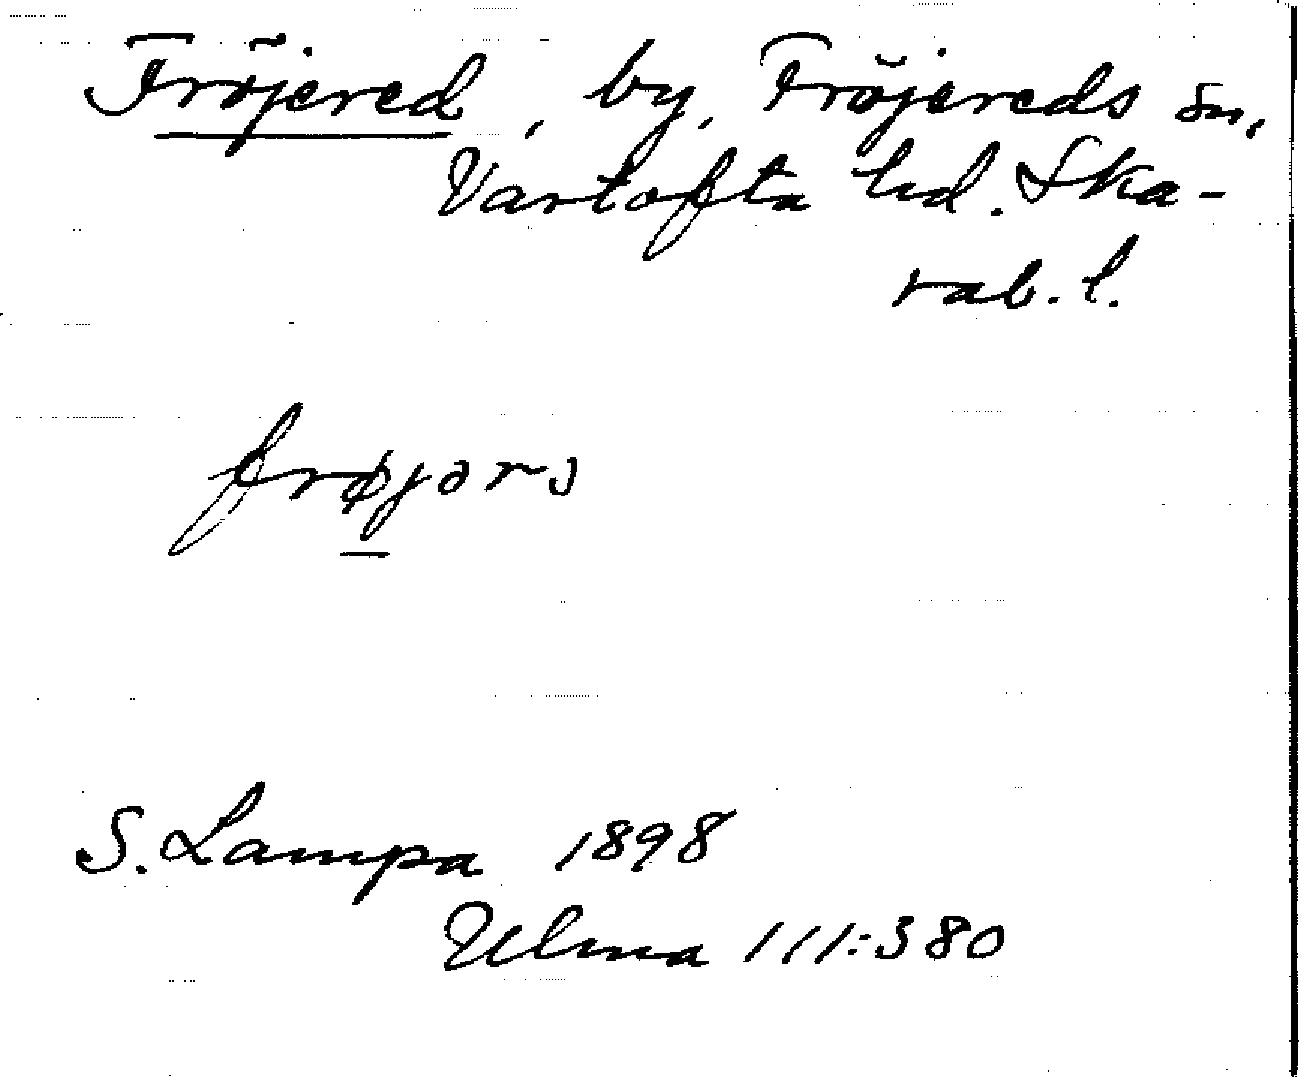 Fröjered, by, Fröjereds sn,
Vartofta hd. Ska-
rab. l.
frøjərs
S. Lampa 1898
Ulma 111:380